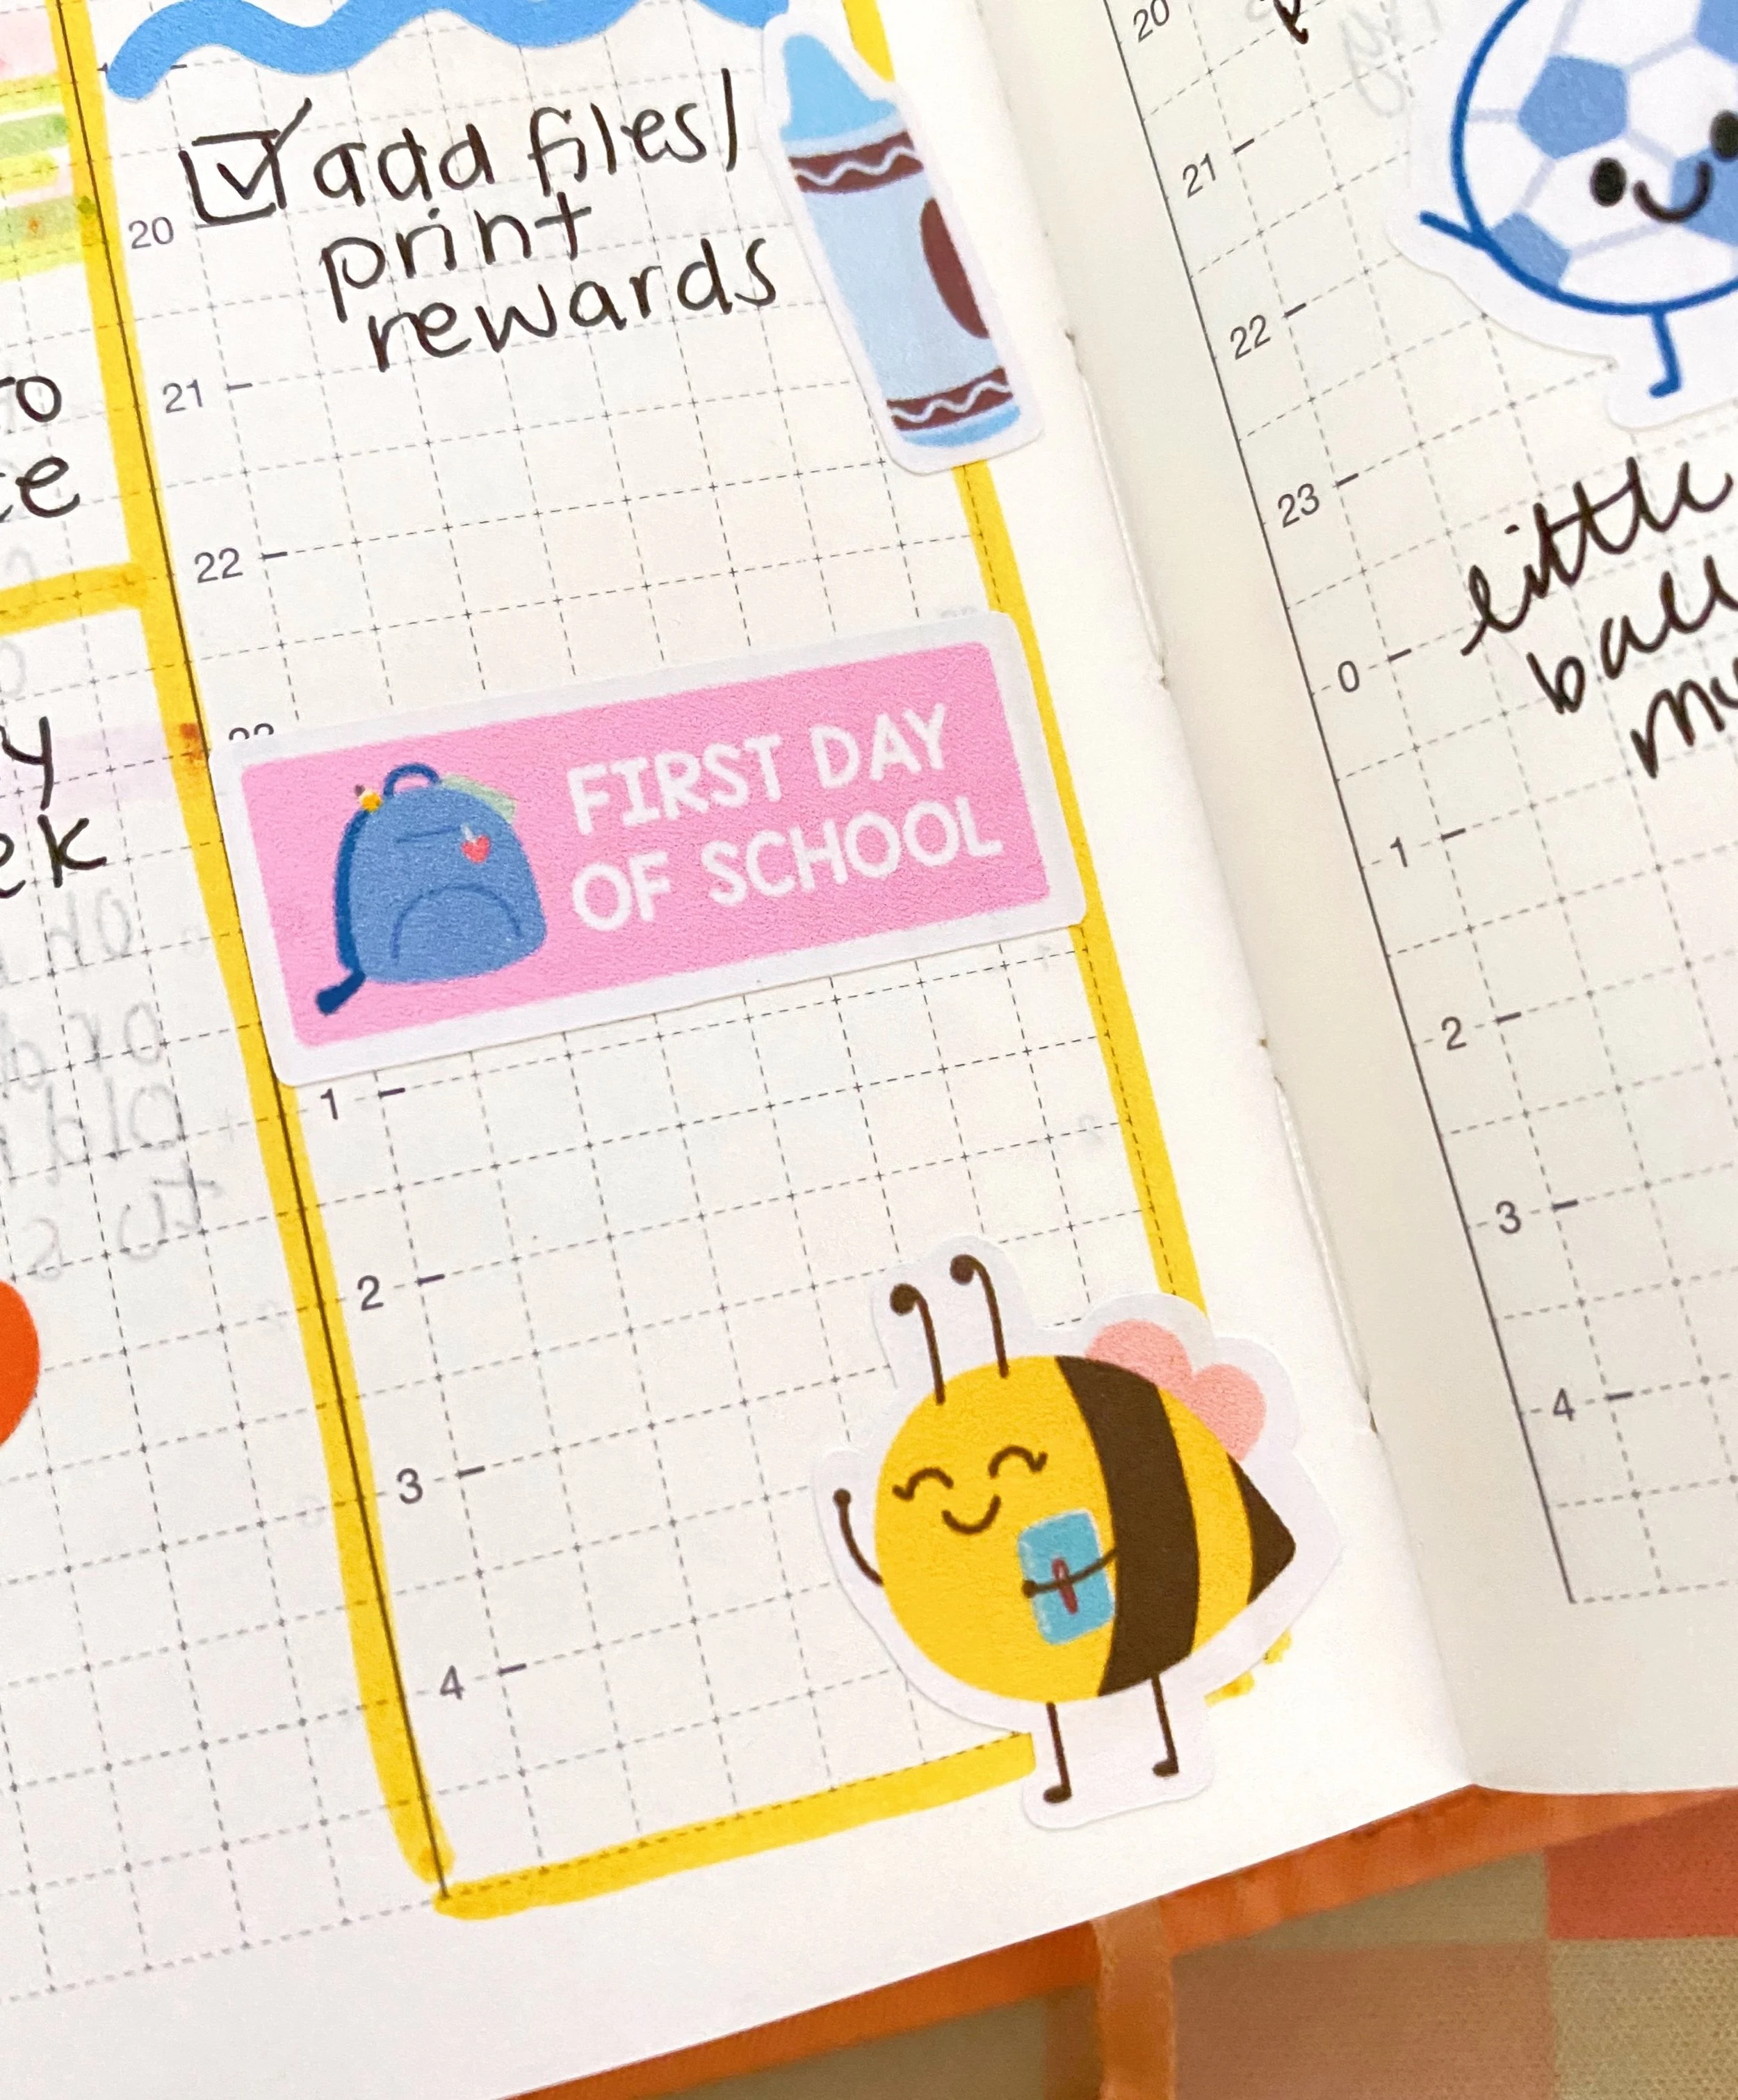 add files/
print
rewards
20
21
22
FIRST DAY
OF SCHOOL
1
2
3
4
20
21
22
23
0
1
2
3
4
little
ball